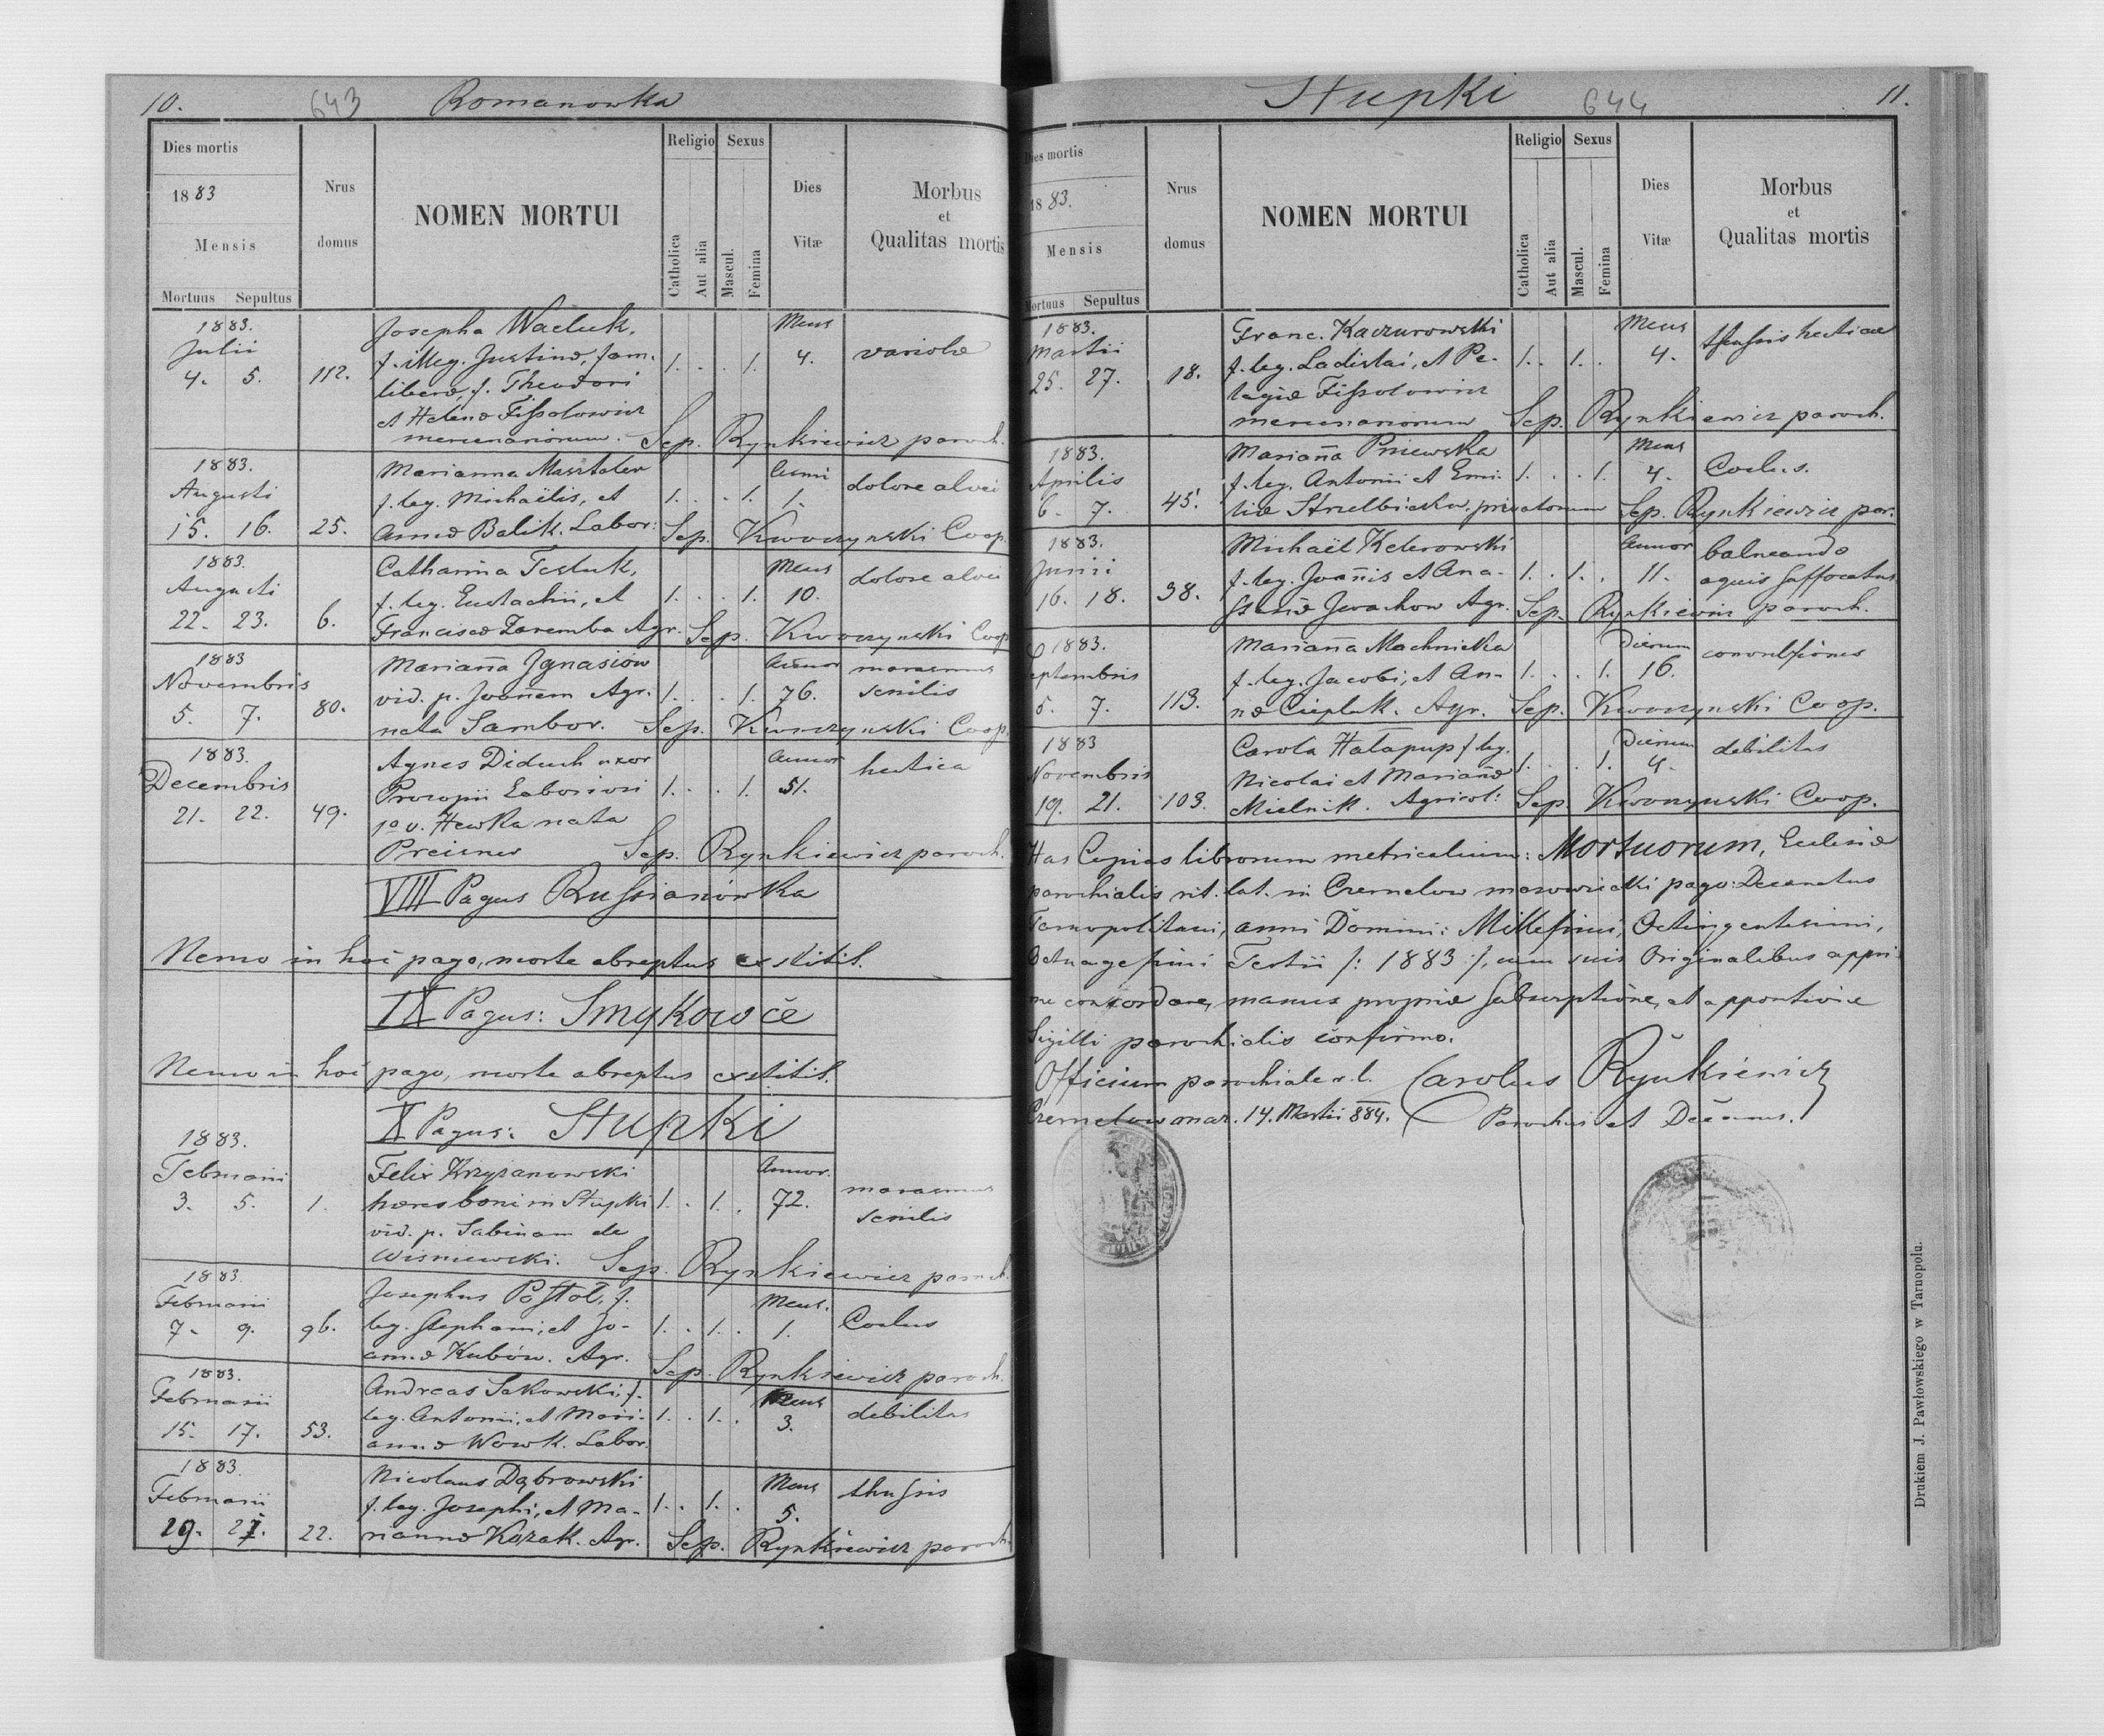 10.
643
Romanowka
Dies mortis
1883
Mensis
Mortuus Sepultus
Nrus domus
NOMEN MORTUI
Religio
Catholica
Aut alia
Sexus
Mascul.
Femina
Dies Vitæ
Morbus
et
Qualitas mortis
1883.
Julii
4. 5. 112.
Josepha Wacluk,
f. illeg. Justinæ, fam.
liberæ, f. Theodori
et Helenæ Fissolowicz
mercenariorum.
1. 1.
Mens
4.
variolæ
Sep. Rynkiewicz paroch.
1883.
Augusti
15. 16. 25.
Marianna Masztaler
f. leg. Michaëlis, et
Annæ Balik. Labor:
1. 1.
Anni
1.
dolore alvei
Sep. Kwoczynski Coop.
1883.
Augusti
22. 23. 6.
Catharina Tesluk,
f. leg. Eustachii, et
Franciscæ Zaremba Agr.
1. 1.
Mens
10.
dolore alvei
Sep. Kwoczynski Coop
1883
Novembris
5. 7. 80.
Marianna Ignasiow
vid. p. Joannem Agr.
nata Sambor.
1. 1.
Annor
76.
marasmus
senilis
Sep. Kwoczynski Coop.
1883.
Decembris
21. 22. 49.
Agnes Diduch uxor
Procopii Laboriosi
1º v. Hewka nata
1. 1.
Annor
51.
hectica
Sep. Rynkiewicz paroch.
VIII Pagus Russianówka
Nemo in hoc pago, morte abreptus exstitit.
IX Pagus: Smykowce
Nemo in hoc pago, morte abreptus exstitit.
X Pagus: Stupki
1883.
Februarii
3. 5. 1.
Felix Krzyżanowski
hæres boni in Stupki
vid. p. Sabinam de
Wisniewski.
1. 1.
Annor.
72.
marasmus
senilis
Sep. Rynkiewicz paroch.
1883
Februarii
7. 9. 96.
Josephus Postol, f.
leg. Stephani, et Jo-
annæ Kubów. Agr.
1. 1.
Mens.
1.
Coclus
Sep. Rynkiewicz paroch.
1883.
Februarii
15. 17. 53.
Andreas Sakowski, f.
leg. Antonii, et Mari-
annæ Wowk. Labor.
1. 1.
Mens
3.
debilitas
1883
Februarii
22.
Nicolaus Dąbrowski
f. leg. Josephi, et Ma-
riannæ Kozak. Agr.
1. 1.
Mens
5.
thussis
Sep. Rynkiewicz paroch.
Stupki
644
11.
Dies mortis
1883.
Mensis
Mortuus Sepultus
Nrus domus
NOMEN MORTUI
Religio
Catholica
Aut alia
Sexus
Mascul.
Femina
Dies Vitæ
Morbus
et
Qualitas mortis
1883.
Martii
25. 27. 18.
Franc. Kaczurowski
f. leg. Ladislai, et Pe-
lagiæ Fissolowicz
mercenariorum
1. 1.
Mens
4.
Sep. Rynkiewicz paroch.
1883.
Aprilis
6. 7. 45.
Marianna Pniewska
f. leg. Antonii et Emi-
liæ privatorum
1. 1.
Mens
4.
Coclus.
Sep. Rynkiewicz par.
1883.
Junii
16. 18. 38.
Michaël Kelerowski
f. leg. Joannis et Ana-
stasiæ Agr.
1. 1.
Annor
11.
balneando
aquis suffocatus
Sep. Rynkiewicz paroch.
1883.
Septembris
5. 7. 113.
Marianna Machnicka
f. leg. Jacobi, et An-
næ Cieplak. Agr.
1. 1.
Dierum
16.
convulsiones
Sep. Kwoczynski Coop.
1883
Novembris
19. 21. 103.
Carola Hałapup f. leg.
Nicolai et Mariannæ
Mielnik. Agricol:
1. 1.
Dierum
4.
debilitas
Sep. Kwoczynski Coop.
Has Copias librorum metricalium: Mortuorum, Ecclesiæ
parochialis rit. lat. in Czernelow mazowiecki pago: Decanatus
Tarnopolitani, anni Domini: Millesimi, Octingentesimi,
Octuagesimi Tertii /: 1883 :/, cum suis Originalibus appri-
me concordare, manus propriæ subscriptione, et appositione
Sigilli parochialis confirmo.
Officium parochiale r. l.
Czernelow maz. 14. Martii 884.
Carolus Rynkiewicz
Parochus et Decanus.
Drukiem J. Pawłowskiego w Tarnopolu.